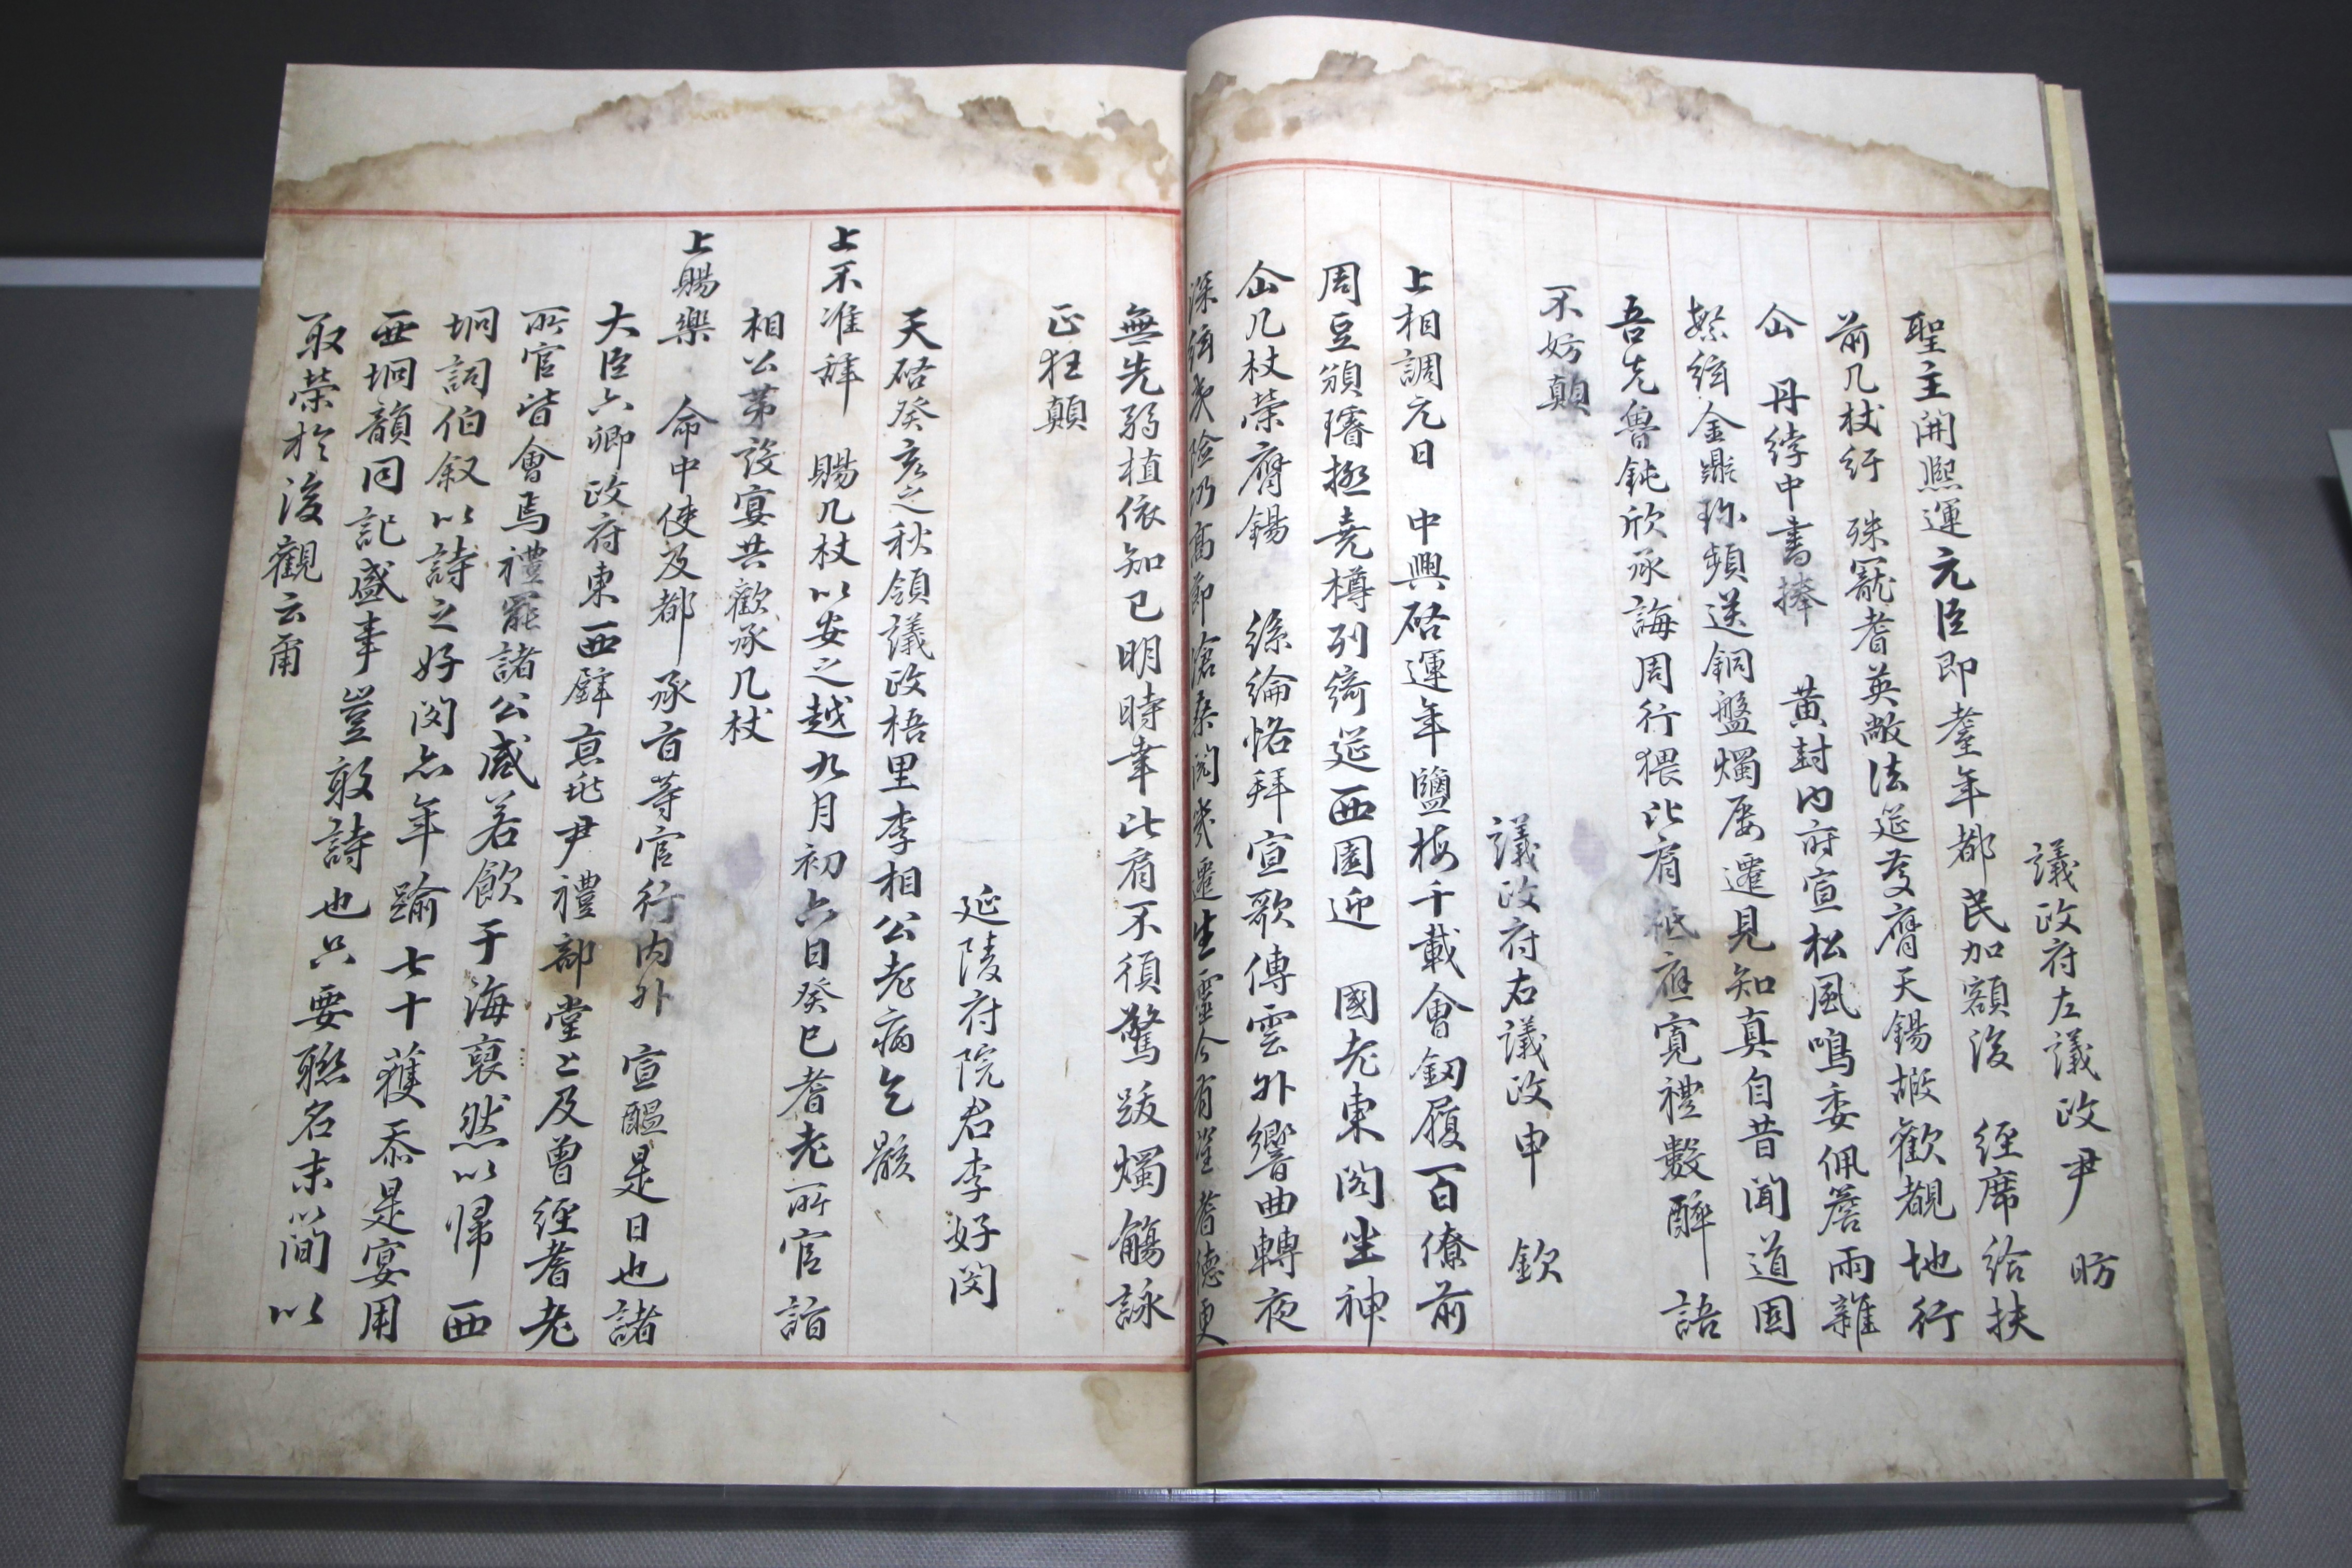 議政府左議政尹 昉
聖主開熙運元臣即耋年都民加額後 經席給扶
前几杖紆 殊寵耆英敞法筵茭膺天錫嘏歡覩地行
仚 丹綍中書捧 黃封內府宣松風鳴委佩簷雨雜
繁絃金鼎珎頻送銅盤燭屡遷見知真自昔聞道固
吾先魯鈍欣承誨周行猥比肩秪應寬禮數醉語
不妨顛
議政府右議政申 欽
上相調元日 中興啓運年鹽梅千載會釼履百僚前
周豆頒璿極尭樽列綺筵西園迎 國老東閣坐神
仚几杖榮膺錫 絲綸恪拜宣歌傳雲外響曲轉夜
深絃夷險仍高節滄桑閱幾遷生靈今有望耆德更
無先弱植依知已明時幸比肩不須驚跋燭觴詠
正狂顛
延陵府院君李好閔
天啓癸亥之秋領議政梧里李相公老病乞骸
上不准辭 賜几杖以安之越九月初六日癸巳耆老所官詣
相公第設宴共歡承几杖
上賜樂 命中使及都承旨等官行內外 宣醞是日也諸
大臣六卿政府東西壁亰兆尹禮部堂上及曾經耆老
所官皆會焉禮罷諸公咸若飲于海裒然以歸 西
坰詞伯叙以詩之好閔忘年踰七十獲忝是宴用
西坰韻同記盛事豈敢詩也只要聯名末簡以
取榮於後觀云甭